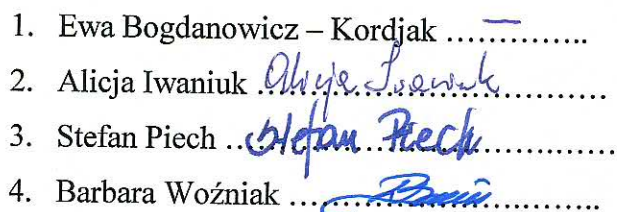 1. Ewa Bogdanowicz – Kordjak ..............
2. Alicja Iwaniuk Alicja Iwaniuk
3. Stefan Piech Stefan Piech
4. Barbara Woźniak